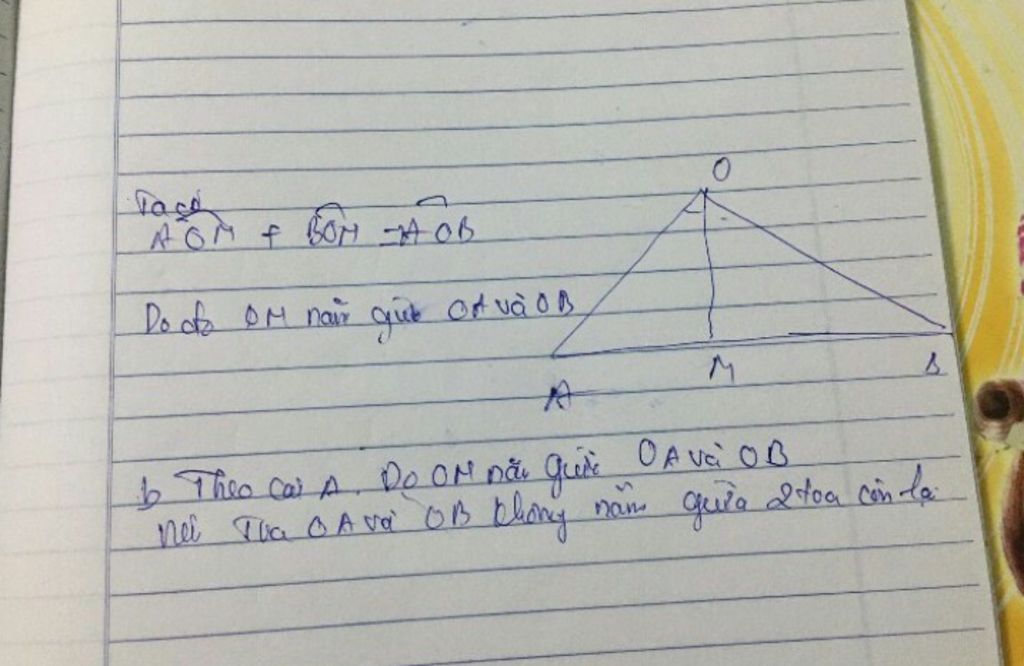 Ta có
AOM + BOM = AOB
O
Do đó OM nằm giữa OA và OB
A
M
B
b Theo câu A. Do OM nằm giữa OA và OB
nên Tia OA và OB không nằm giữa 2 toa còn lại